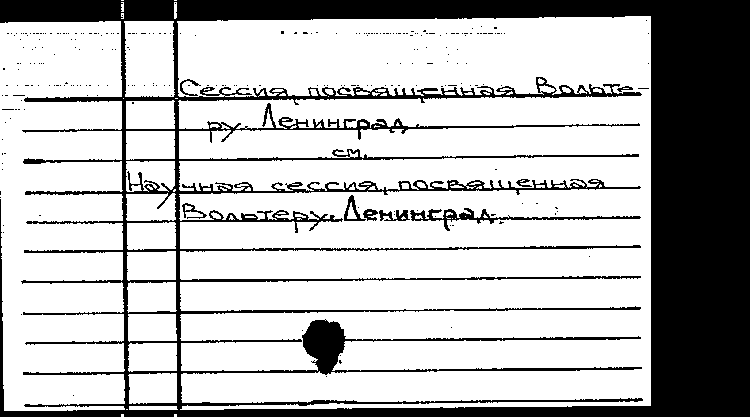 Сессия, посвященная Вольте-
ру Ленинград.
см.
Научная сессия, посвященная
Вольтеру. Ленинград.